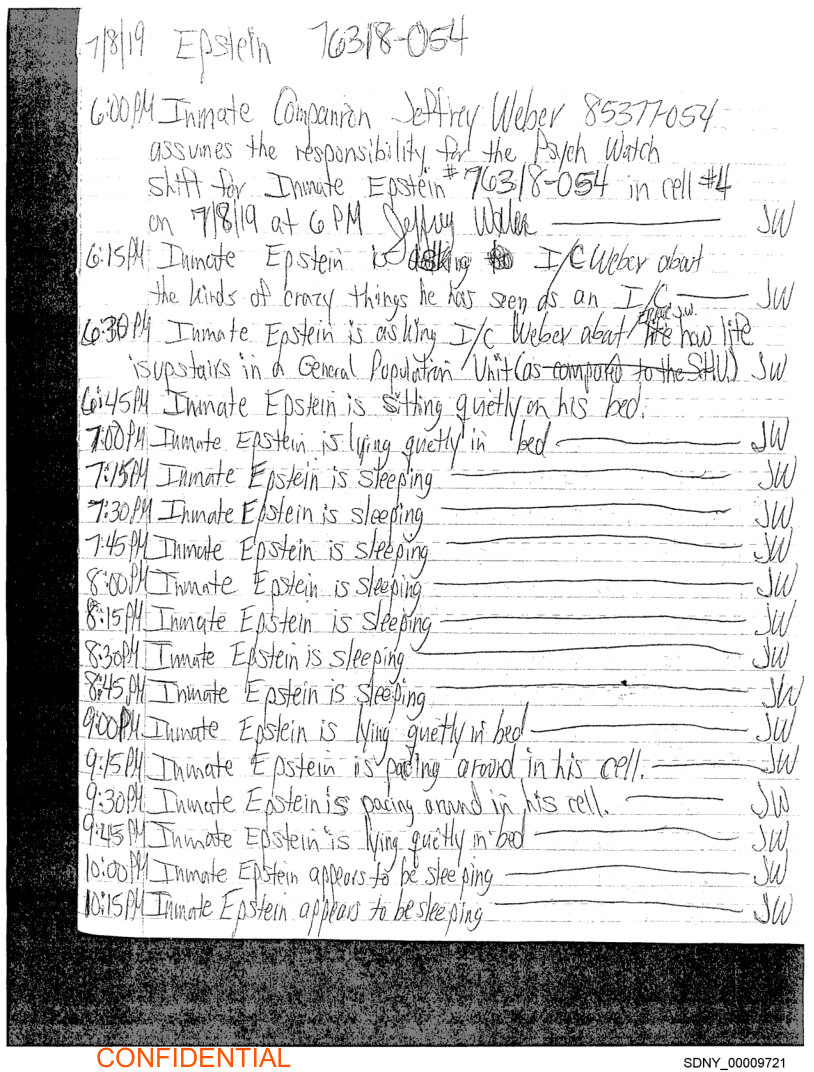 7/8/19 Epstein 76318-054
6:00PM Inmate Companion Jeffrey Weber 85377-054
assumes the responsibility for the Psych Watch
shift for Inmate Epstein #76318-054 in cell #4
on 7/8/19 at 6 PM Jeffrey Weber JW
6:15PM Inmate Epstein is asking I/C Weber about
the kinds of crazy things he has seen as an I/C JW
Error J.W.
6:30 PM Inmate Epstein is asking I/C Weber about life how life
is upstairs in a General Population Unit (as compared to the SHU) JW
6:45PM Inmate Epstein is sitting quetly on his bed.
7:00PM Inmate Epstein is lying quetly in bed JW
7:15PM Inmate Epstein is sleeping JW
7:30PM Inmate Epstein is sleeping JW
7:45PM Inmate Epstein is sleeping JW
8:00PM Inmate Epstein is sleeping JW
8:15PM Inmate Epstein is sleeping JW
8:30PM Inmate Epstein is sleeping JW
8:45PM Inmate Epstein is sleeping JW
9:00PM Inmate Epstein is lying quetly in bed JW
9:15PM Inmate Epstein is pacing around in his cell. JW
9:30PM Inmate Epstein is pacing around in his cell. JW
9:45PM Inmate Epstein is lying quetly in bed JW
10:00PM Inmate Epstein appears to be sleeping JW
10:15PM Inmate Epstein appears to be sleeping JW
CONFIDENTIAL
SDNY_00009721